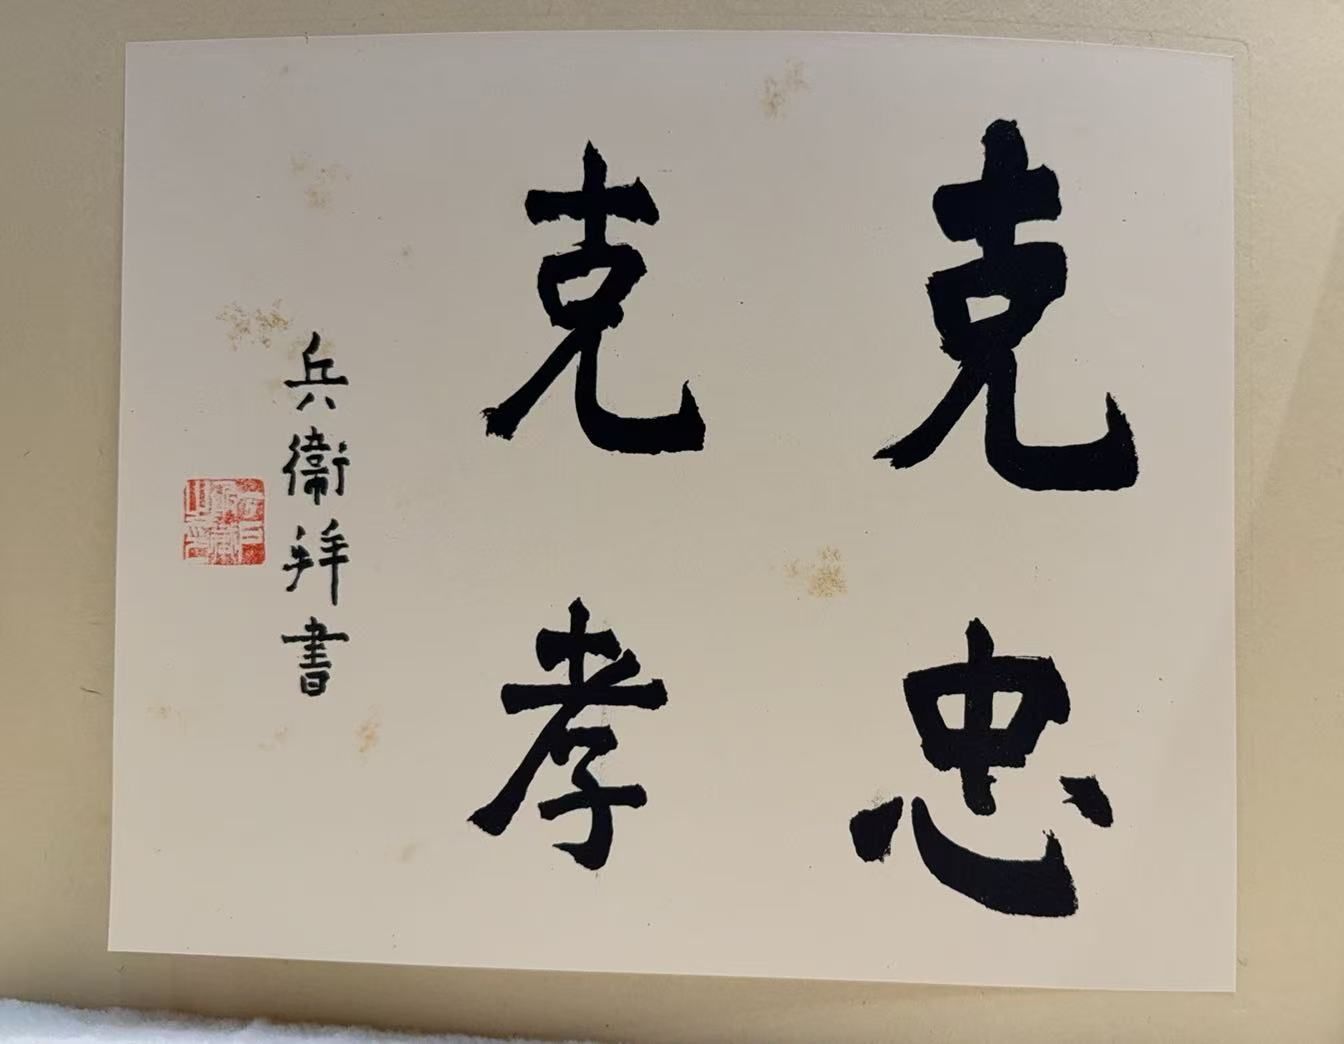 克忠
克孝
兵衞拜書